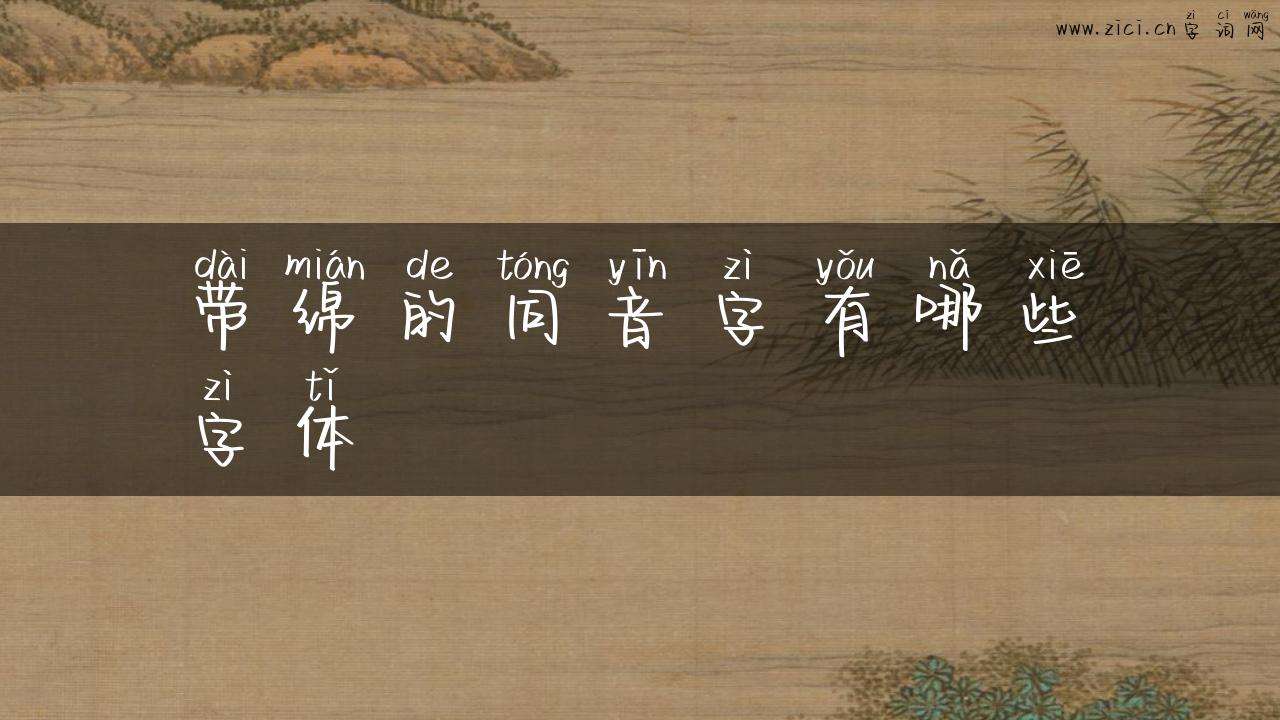 zì cí wǎng
www.zici.cn 字词网
dài mián de tóng yīn zì yǒu nǎ xiē
带绵的同音字有哪些
zì tǐ
字体